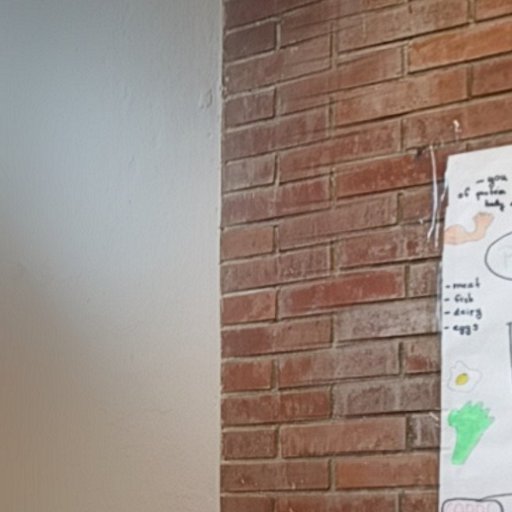 - you
of protein
body
- meat
- fish
- dairy
- eggs